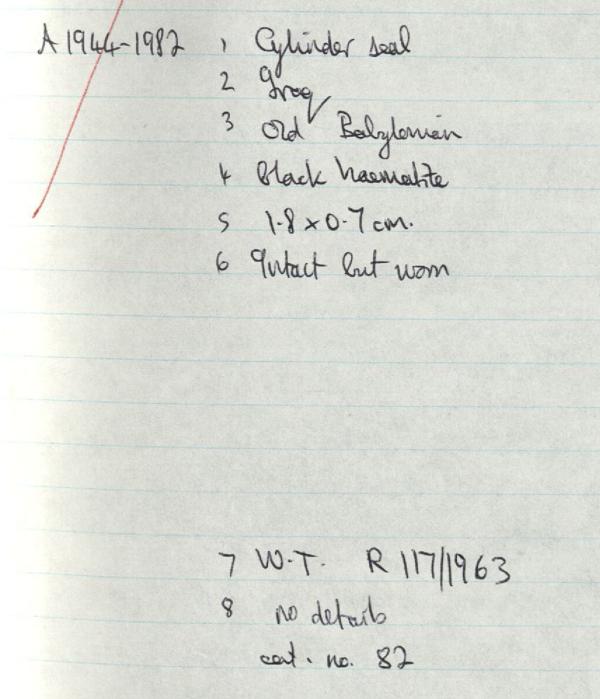 A 1944-1982 1 Cylinder seal
2 Iraq
3 Old Babylonian
4 Black haematite
5 1.8 x 0.7 cm.
6 Intact but worn
7 W.T. R 117/1963
8 no details
cat. no. 82